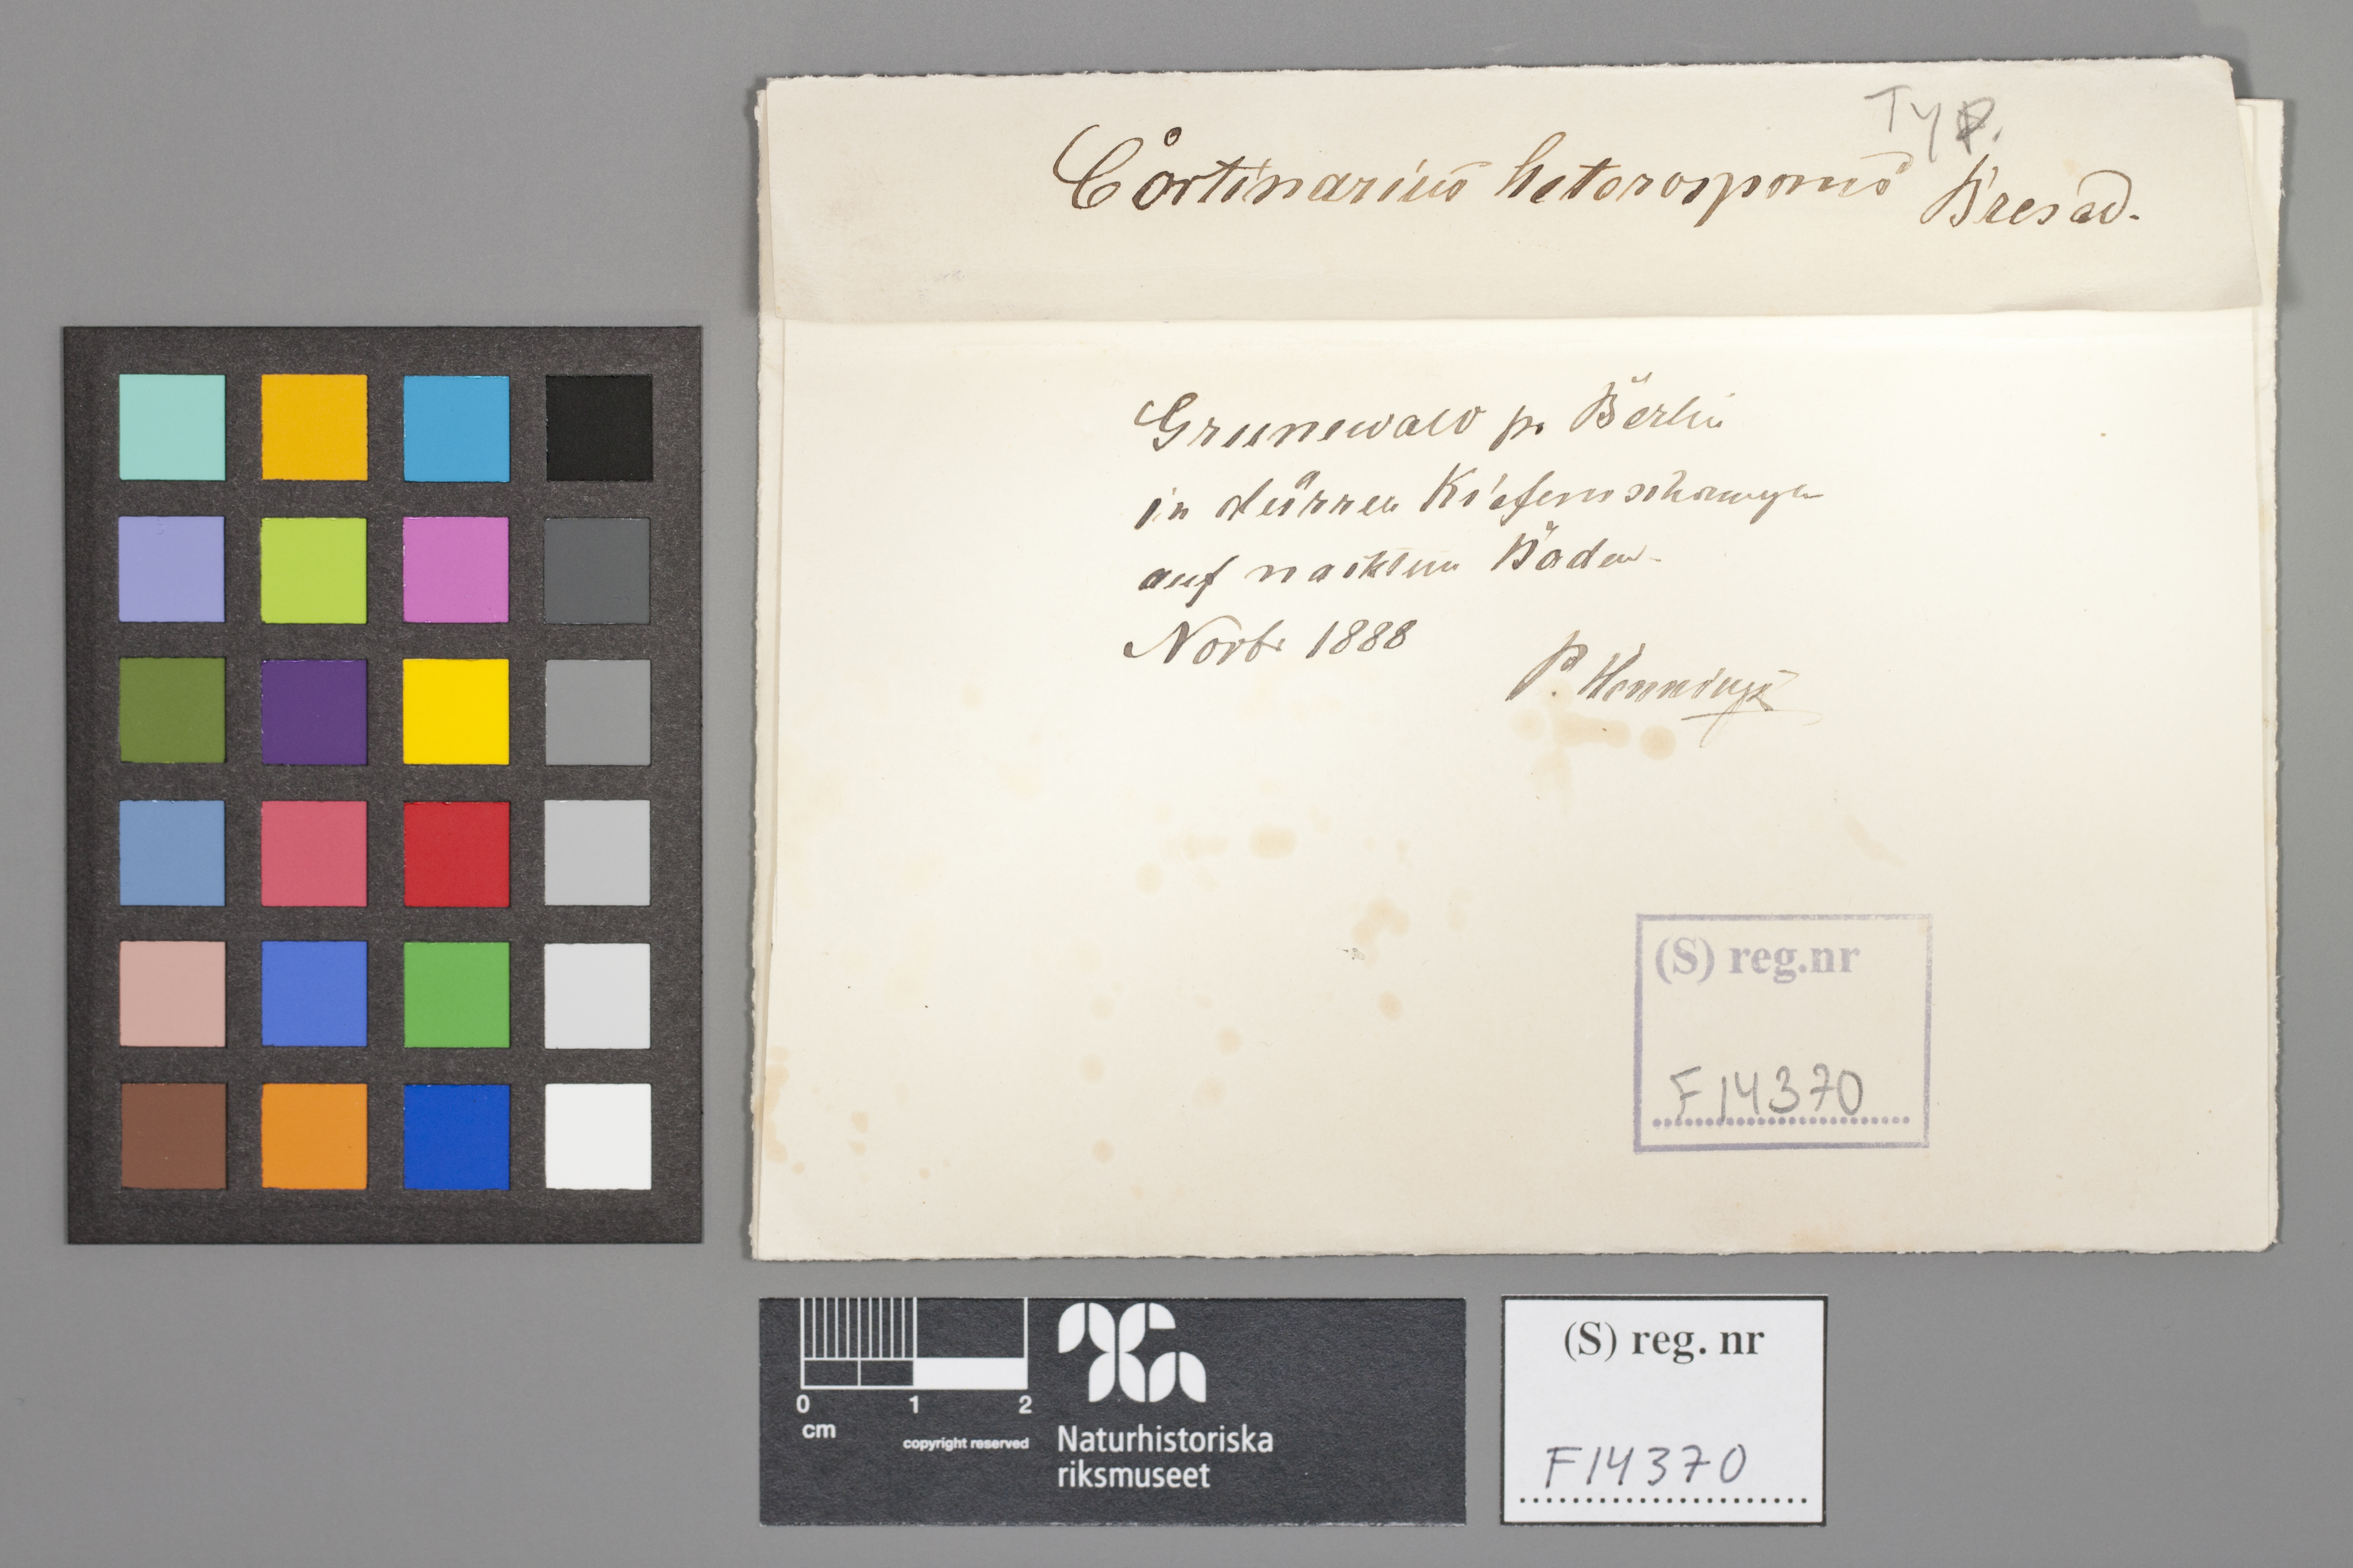 Typ.
Cortinarius heterosporus Bresad.
Grunewald p. Berlin
in dürren Kiefernschonungen
auf nacktem Boden
Novbr 1888
P. Hennings
(S) reg.nr
F14370
0 1 2
cm
copyright reserved
Naturhistoriska
riksmuseet
(S) reg. nr
F14370